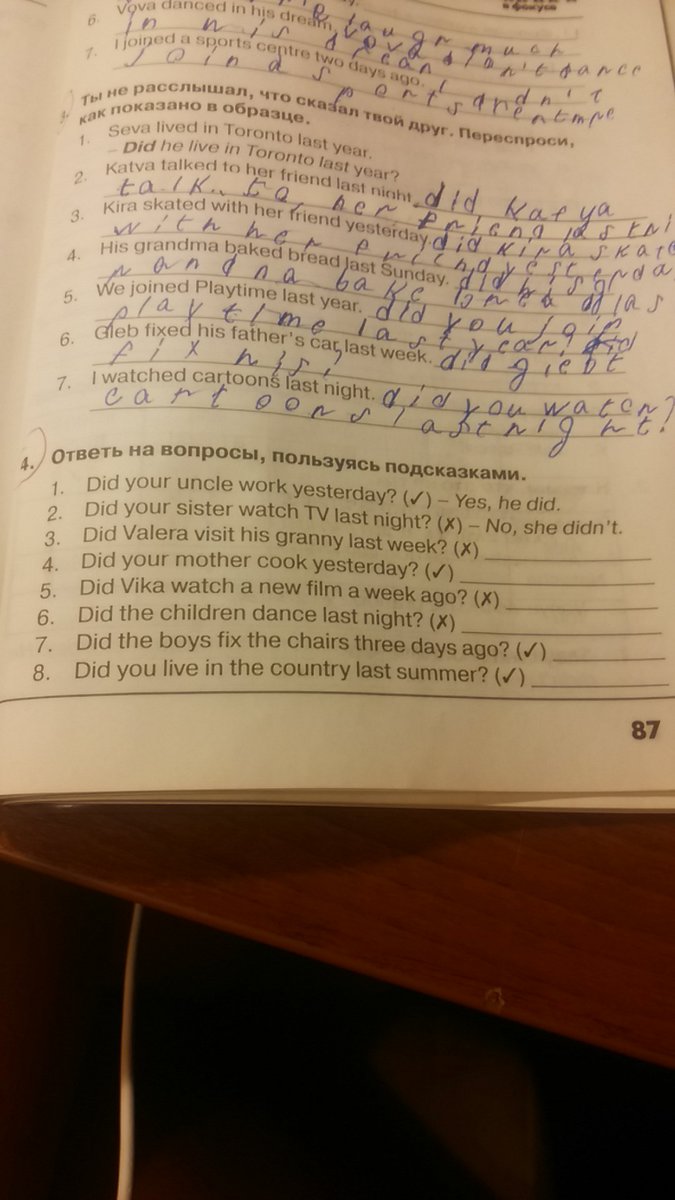 в фокусе
laugh much
6. Vova danced in his dream.
in
7. I joined a sports centre two days ago. I didn't
join a sports
Ты не расслышал, что сказал твой друг. Переспроси,
как показано в образце.
1. Seva lived in Toronto last year.
– Did he live in Toronto last year?
2. Katya talked to her friend last night. did Katya
talk to her friend
3. Kira skated with her friend yesterday. did Kira skate
with her
4. His grandma baked bread last Sunday. did his
bake
5. We joined Playtime last year. did you join
playtime last year? did
6. Gleb fixed his father's car last week. did
fix his
7. I watched cartoons last night. did you watch?
cartoons last night?
4. Ответь на вопросы, пользуясь подсказками.
1. Did your uncle work yesterday? (✓) – Yes, he did.
2. Did your sister watch TV last night? (✗) – No, she didn't.
3. Did Valera visit his granny last week? (✗)
4. Did your mother cook yesterday? (✓)
5. Did Vika watch a new film a week ago? (✗)
6. Did the children dance last night? (✗)
7. Did the boys fix the chairs three days ago? (✓)
8. Did you live in the country last summer? (✓)
87